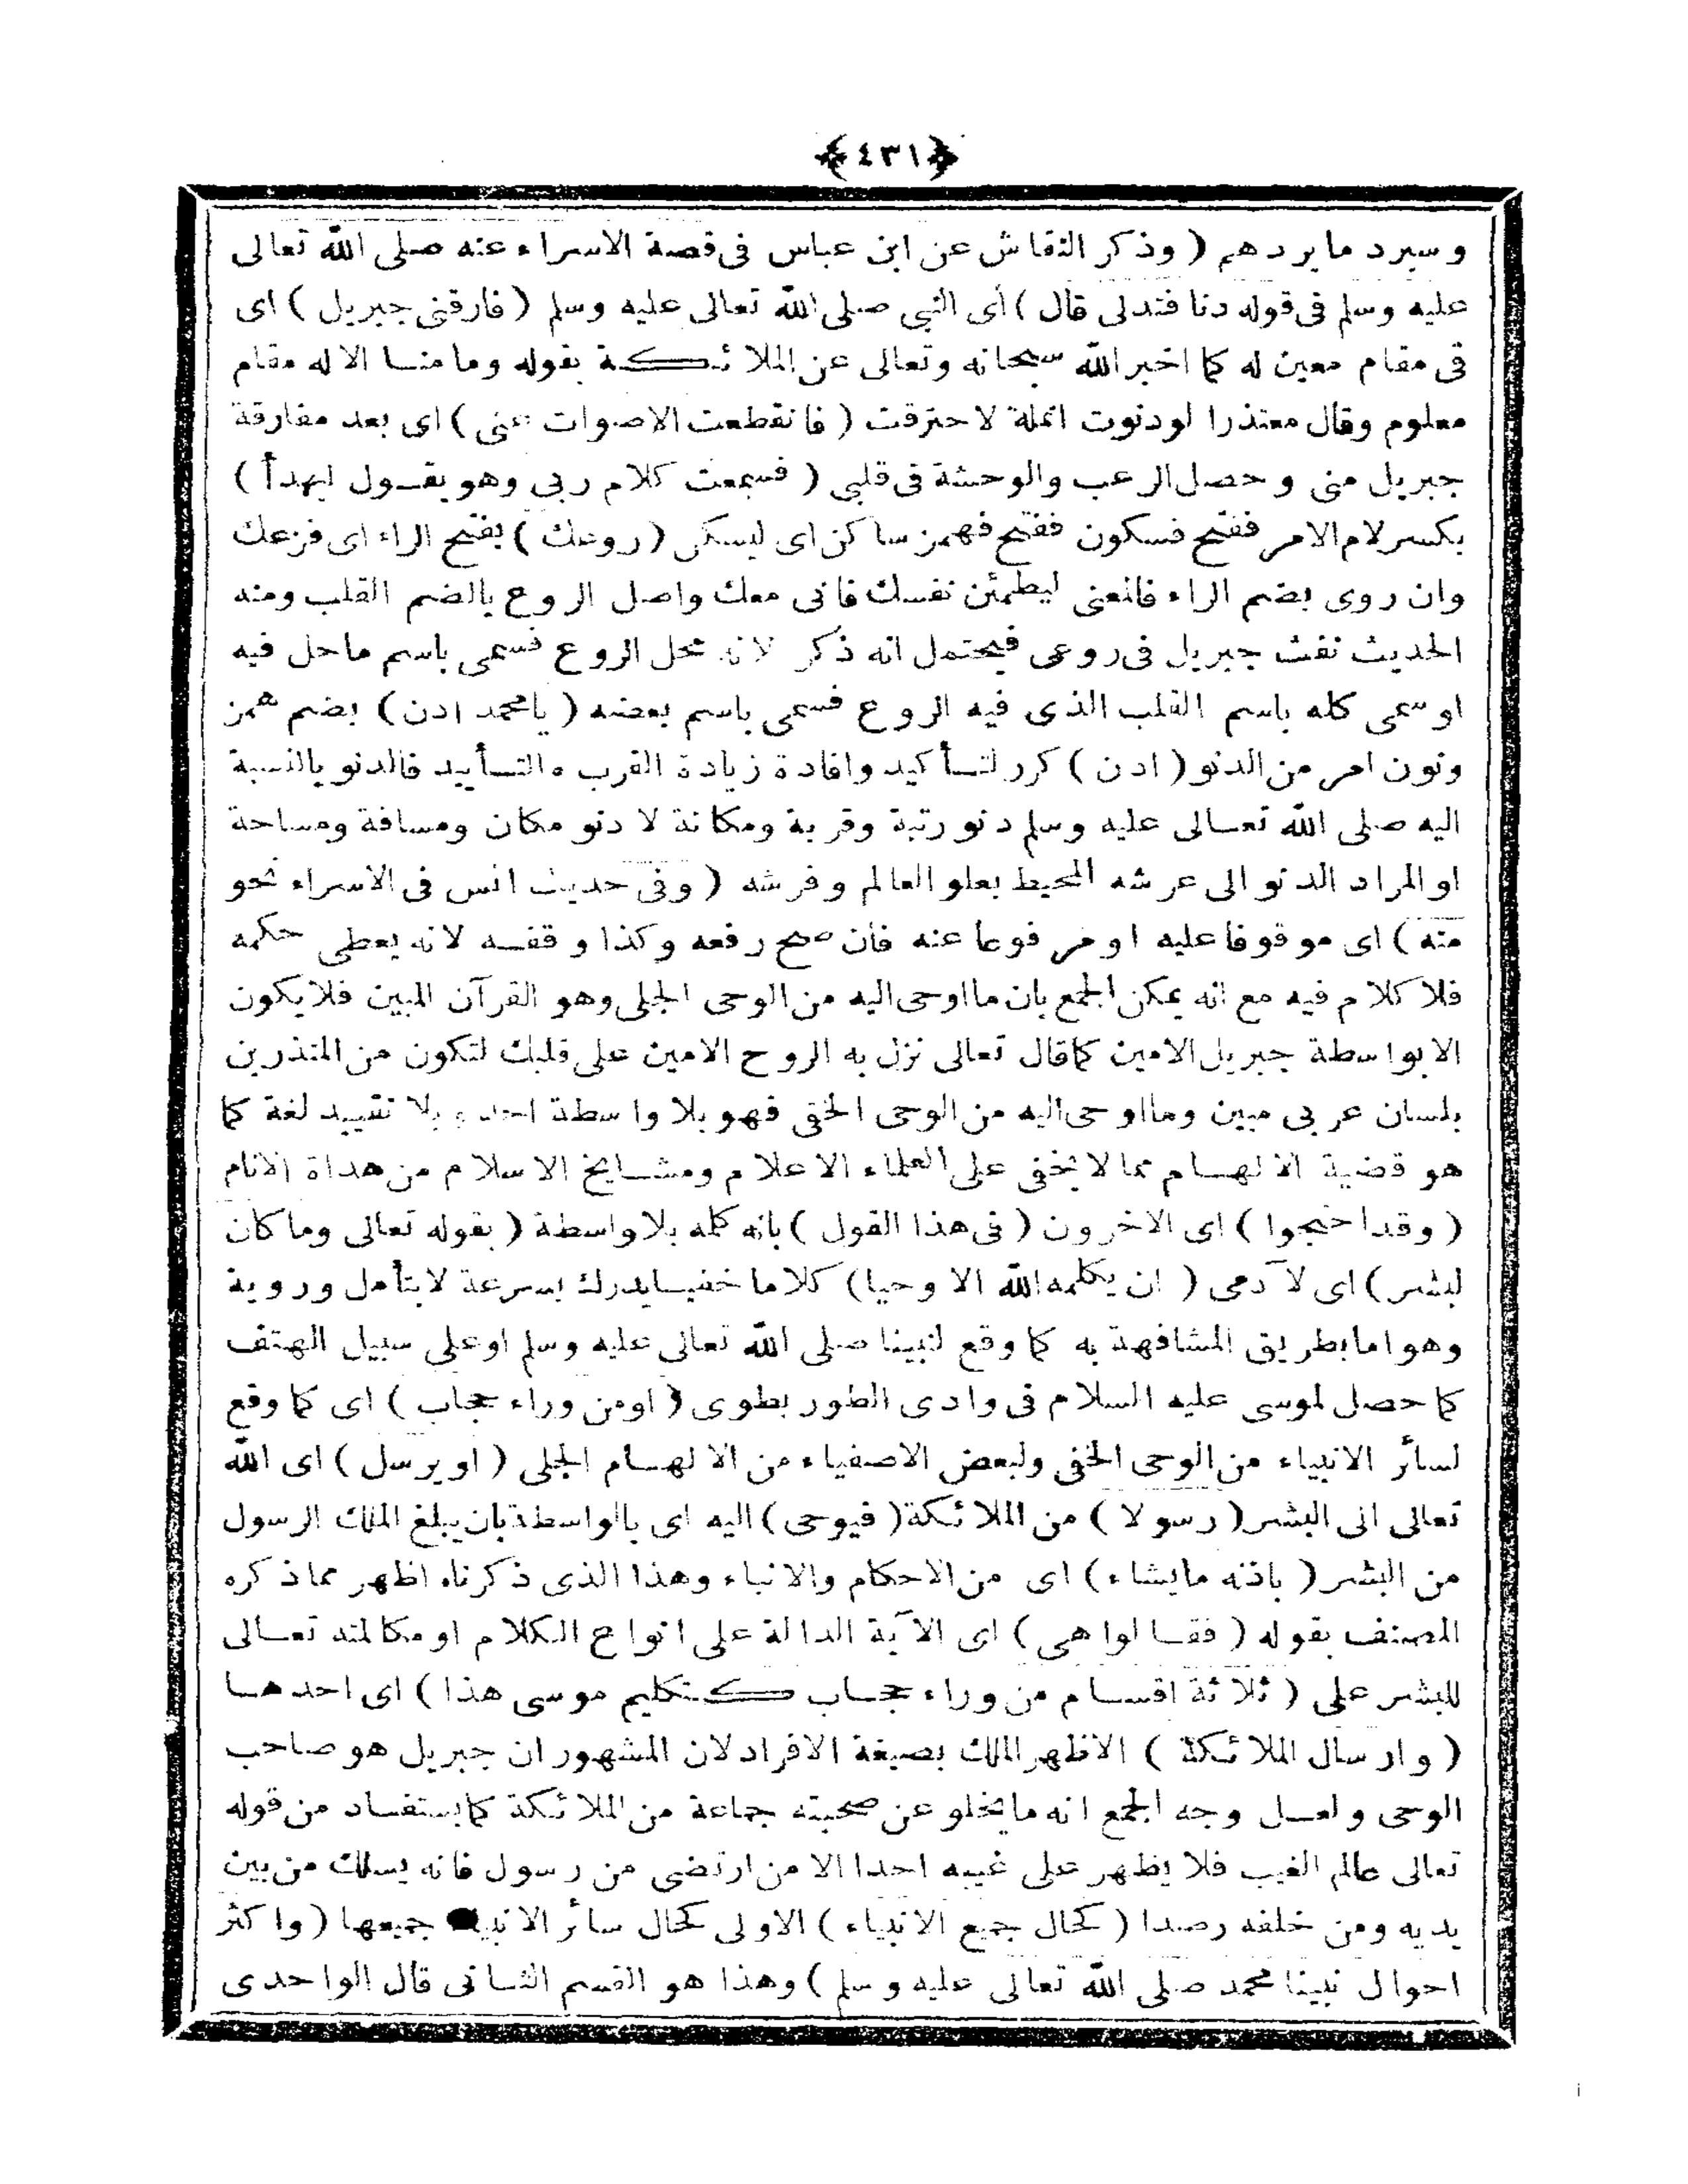 ﴿٤٣١﴾
وسيرد ما يردهم ( وذكر النقاش عن ابن عباس فى قصة الاسراء عنه صلى الله تعالى
عليه وسلم فى قوله دنا فتدلى قال ) أى النبى صلى الله تعالى عليه وسلم ( فارقنى جبريل ) اى
فى مقام معين له كما اخبر الله سبحانه وتعالى عن الملائكة بقوله وما منا الا له مقام
معلوم وقال معتذرا لو دنوت انملة لاحترقت ( فانقطعت الاصوات عنى ) اى بعد مفارقة
جبريل منى وحصل الرعب والوحشة فى قلبى ( فسمعت كلام ربى وهو يقول ليهدأ )
بكسر لام الامر ففتح فسكون ففتح فهمز ساكن اى ليسكن ( روعك ) بفتح الراء اى فزعك
وان روى بضم الراء فالمعنى ليطمئن نفسك فانى معك واصل الروع بالضم القلب ومنه
الحديث نفث جبريل فى روعى فيحتمل انه ذكر لانه محل الروع فسمى باسم ما حل فيه
او سمى كله باسم القلب الذى فيه الروع فسمى باسم بعضه ( يا محمد ادن ) بضم همز
ونون امر من الدنو ( ادن ) كرر لتأكيد وافادة زيادة القرب والتأييد فالدنو بالنسبة
اليه صلى الله تعالى عليه وسلم دنو رتبة وقربة ومكانة لا دنو مكان ومسافة ومساحة
او المراد الدنو الى عرشه المحيط بعلو العالم وفرشه ( وفى حديث انس فى الاسراء نحو
منه ) اى موقوفا عليه او مرفوعا عنه فان صح رفعه وكذا وقفه لانه يعطى حكمه
فلا كلام فيه مع انه يمكن الجمع بان ما اوحى اليه من الوحى الجلى وهو القرآن المبين فلا يكون
الا بواسطة جبريل الامين كما قال تعالى نزل به الروح الامين على قلبك لتكون من المنذرين
بلسان عربى مبين وما اوحى اليه من الوحى الخفى فهو بلا واسطة احد وبلا تقييد لغة كما
هو قضية الالهام مما لا يخفى على العلماء الاعلام ومشايخ الاسلام من هداة الانام
( وقد احتجوا ) اى الاخرون ( فى هذا القول ) بانه كلمه بلا واسطة ( بقوله تعالى وما كان
لبشر ) اى لآدمى ( ان يكلمه الله الا وحيا ) كلاما خفيا يدرك بسرعة لا بتأمل وروية
وهو اما بطريق المشافهة به كما وقع لنبينا صلى الله تعالى عليه وسلم او على سبيل الهتف
كما حصل لموسى عليه السلام فى وادى الطور بطوى ( او من وراء حجاب ) اى كما وقع
لسائر الانبياء من الوحى الخفى ولبعض الاصفياء من الالهام الجلى ( او يرسل ) اى الله
تعالى الى البشر ( رسولا ) من الملائكة ( فيوحى ) اليه اى بالواسطة بان يبلغ الملك الرسول
من البشر ( باذنه ما يشاء ) اى من الاحكام والانباء وهذا الذى ذكرناه اظهر مما ذكره
المصنف بقوله ( فقالوا هى ) اى الآية الدالة على انواع الكلام او مكالمته تعالى
للبشر على ( ثلاثة اقسام من وراء حجاب كتكليم موسى هذا ) اى احدها
( وارسال الملائكة ) الاظهر الملك بصيغة الافراد لان المشهور ان جبريل هو صاحب
الوحى ولعل وجه الجمع انه ما يخلو عن صحبته جماعة من الملائكة كما يستفاد من قوله
تعالى عالم الغيب فلا يظهر على غيبه احدا الا من ارتضى من رسول فانه يسلك من بين
يديه ومن خلفه رصدا ( كحال جميع الانبياء ) الاولى كحال سائر الانبياء جميعها ( واكثر
احوال نبينا محمد صلى الله تعالى عليه وسلم ) وهذا هو القسم الثانى قال الواحدى